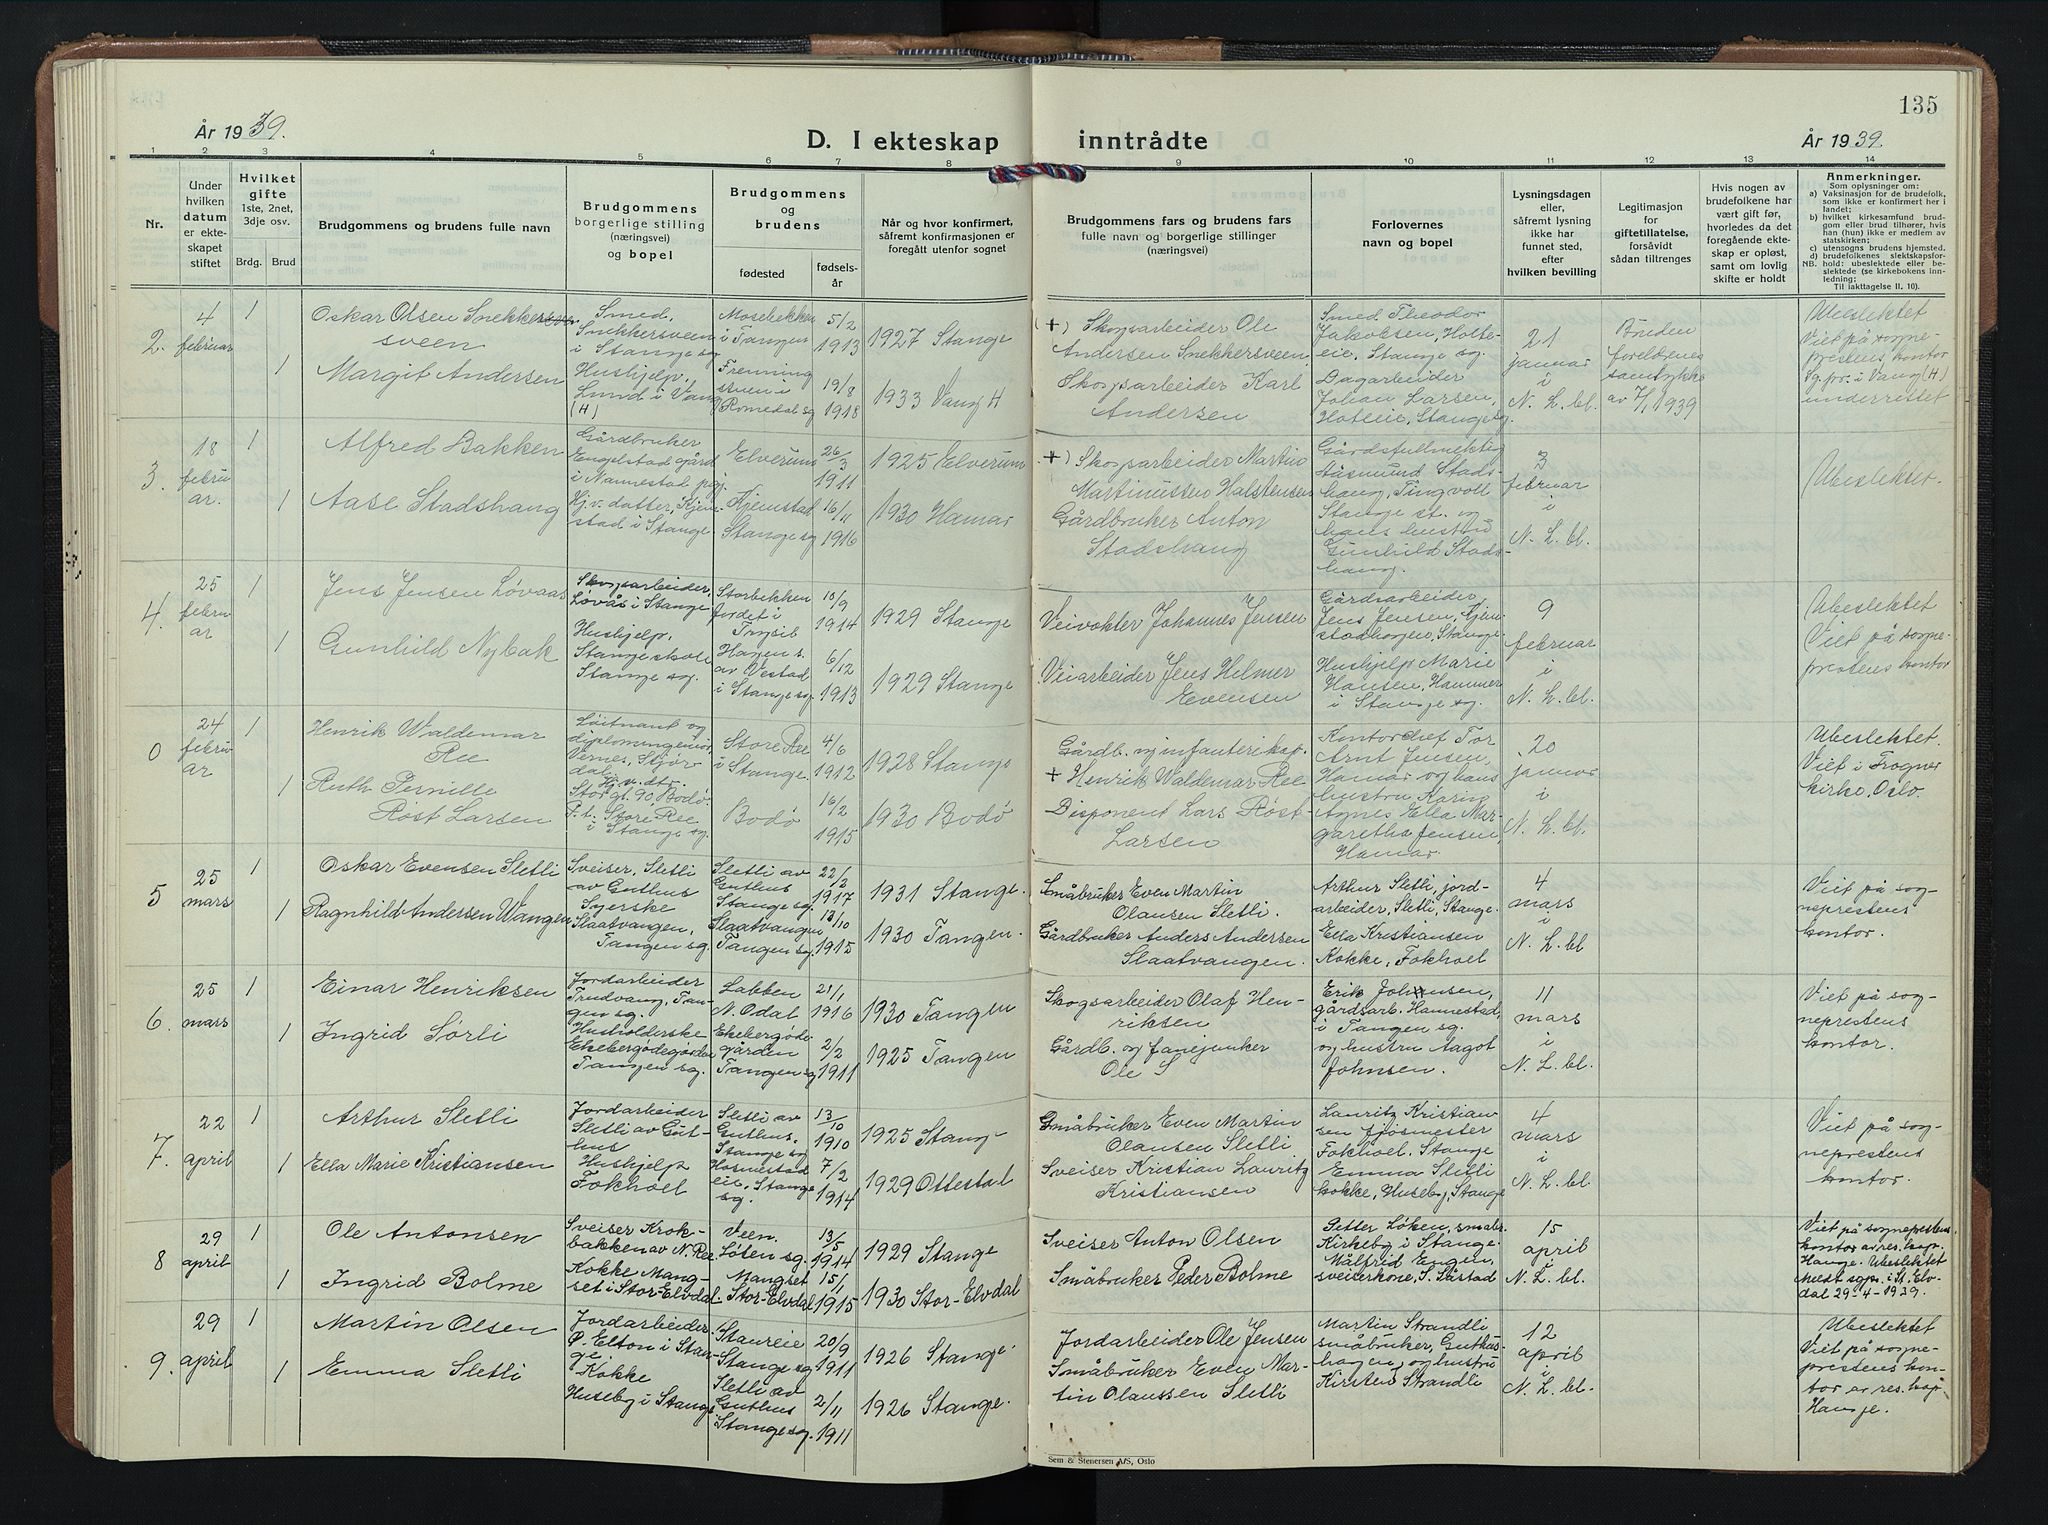 135
År 1939.
D. I ekteskap inntrådte
År 1939
1 2 3 4 5 6 7 8 9 10 11 12 13 14
Nr.
Under hvilken datum er ekteskapet stiftet
Hvilket gifte 1ste, 2net, 3dje osv.
Brdg. Brud
Brudgommens og brudens fulle navn
Brudgommens borgerlige stilling (næringsvei) og bopel
Brudgommens og brudens
fødested
fødselsår
Når og hvor konfirmert, såfremt konfirmasjonen er foregått utenfor sognet
Brudgommens fars og brudens fars fulle navn og borgerlige stillinger (næringsvei)
Forlovernes navn og bopel
Lysningsdagen eller, såfremt lysning ikke har funnet sted, efter hvilken bevilling
Legitimasjon for giftetillatelse, forsåvidt sådan tiltrenges
Hvis nogen av brudefolkene har vært gift før, hvorledes da det foregående ekteskap er opløst, samt om lovlig skifte er holdt
Anmerkninger.
Som oplysninger om:
a) Vaksinasjon for de brudefolk, som ikke er konfirmert her i landet;
b) hvilket kirkesamfund brudgom eller brud tilhører, hvis han (hun) ikke er medlem av statskirken;
c) utensogns brudens hjemsted.
d) brudefolkenes slektskapsforhold: ubeslektede eller beslektede (se kirkebokens innledning;
NB. Til iakttagelse II. 10).
2. 4 februar 1
Oskar Olsen Snekkersveen
Smed, Snekkersveen i Stange sg
Mosebekken i Tangen
5/2 1913
1927 Stange
(+) Skogsarbeider Ole Andersen Snekkersveen
Smed Theodor Jakobsen, Hotteie, Stange sg.
21 januar i N. L. bl.
Bruden foreldrenes samtykke av 7/1 1939
Ubeslektet Viet på sogneprestens kontor Sg.pr. i Vang (H) underrettet
1 Margit Andersen
Hushjelp, Lund i Vang (H)
Frenningsveen i Romedal sg
19/8 1918
1933 Vang H
Skogsarbeider Karl Andersen
Dagarbeider Johan Larsen, Hotteie, Stange sg.
3. 18 februar. 1
Alfred Bakken
Gårdbruker Engelstad gård i Nannestad pgj.
Elverum
26/3 1911
1925 Elverum
+) Skogsarbeider Martin Martinussen Halstensen
Gårdsfullmektig Aasmund Stadshaug, Tingvoll Stange st. og hans hustru Gunhild Stadshaug.
3 februar i N. L. bl.
Ubeslektet.
1 Aase Stadshaug
Hj.v. datter, Kjemstad i Stange
Kjemstad Stange sg
16/11 1916
1930 Hamar
Gårdbruker Anton Stadshaug
4. 25 februar 1
Jens Jensen Løvaas
Skogsarbeider, Løvås i Stange
Storbekkenfordet i Trysil
10/9 1914
1929 Stange
Veivokter Johannes Jensen
Gårdsarbeider Jens Jensen, Kjemstadhagen, Stange.
9 februar i N. L. bl.
Ubeslektet Viet på sogneprestens kontor
1 Gunhild Nybak
Hushjelp, Stange skole Stange sg.
Hagen s. av Vestad i Stange sg
6/12 1913
1929 Stange
Veiarbeider Jens Helmer Evensen
Hushjelp Marie Hansen, Hammer i Stange sg.
0 24 februar 1
Henrik Waldemar Ree
Løitnant og diplomingeniør, Vernes, Stjørdal.
Store Ree i Stange.
4/6 1912
1928 Stange
Gårdb. og infanterikap. + Henrik Waldemar Ree
Kontorchef Tor Arnt Jensen, Hamar og hans hustru Karin Agnes Ella Margaretha Jensen, Hamar.
20 januar i N. L. bl.
Ubeslektet. Viet i Frogner kirke, Oslo.
1 Ruth Pernille Røst Larsen
Hj.v. dtr. Storgt. 90 Bodø. P.t. Store Ree i Stange sg.
Bodø
16/2 1915
1930 Bodø
Disponent Lars Røst Larsen
5 25 mars 1
Oskar Evensen Sletli
Sveiser, Sletli av Guthus
Sletli av Guthus Stange sg.
22/2 1917
1931 Stange.
Småbruker Even Martin Olausen Sletli.
Arthur Sletli, jordarbeider, Sletli, Stange.
4 mars i N. L. bl
Viet på sogneprestens kontor.
1 Ragnhild Andersen Wangen
Syerske Slaatvangen, Tangen sg.
Slaatvangen Tangen sg.
13/10 1915
1930 Tangen.
Gårdbruker Anders Andersen Slaatvangen.
Ella Kristiansen Kokke, Fokhoel
6. 25 mars 1
Einar Henriksen
Jordarbeider Trudvang, Tangen sg.
Labben N. Odal
21/1 1916
1930 Tangen
Skogsarbeider Olaf Henriksen
Erik Johnsen, gårdsarb. Hannestad, i Tangen sg. og hustru Aagot Johnsen.
11 mars i N. L. bl.
Viet på sogneprestens kontor.
1 Ingrid Sørli
Husholderske Ekebergødegården Tangen sg.
Ekebergødegården Tangen sg
2/2 1911
1925 Tangen
Gårdb. og fanejunker Ole S
7. 22 april 1
Arthur Sletli
Jordarbeider Sletli av Guthus
Sletli av Guthus. Stange sg
13/10 1910
1925 Stange
Småbruker Even Martin Olausen Sletli
Lauritz Kristiansen fjøsmester Fokhoel. Stange
4 mars i N. L. bl.
Viet på sogneprestens kontor.
1 Ella Marie Kristiansen
Hushjelp Fokhoel
Hosmestadeie, Stange sg.
7/2 1914
1929 Ottestad
Sveiser Kristian Lauritz Kristiansen
Emma Sletli kokke, Huseby, Stange
8 29 april 1
Ole Antonsen
Sveiser Krokbakken av N. Ree
Veen. Løten sg.
13/5 1914
1929 Stange
Sveiser Anton Olsen
Petter Løken, småbr. Kirkeby i Stange. Målfrid Engen, sveiserkone, S. Såstad
15 april N. L. bl.
Viet på sogneprestens kontor av res. kap. Hauge. Ubeslektet Meldt sgpr. i St. Elvdal 29-4-1939.
1 Ingrid Bolme
Kokke Mangset i Stor-Elvdal.
Mangset Stor-Elvdal
15/1 1915
1930 Stor-Elvdal
Småbruker Peder Bolme
9. 29 april 1
Martin Olsen
Jordarbeider Ø. Elton i Stange.
Staureie Stange sg
20/9 1911
1926 Stange.
Jordarbeider Ole Jensen
Martin Strandli småbruker, Guthushagen, og hustru Kirsten Strandli
12 april i N. L. bl.
Ubeslektet Viet på sogneprestens kontor av res. kap. Hauge.
1 Emma Sletli
Kokke Huseby i Stange
Sletli av Guthus Stange sg.
2/11 1911
1926 Stange.
Småbruker Even Martin Olaussen Sletli
Sem & Stenersen A/S, Oslo